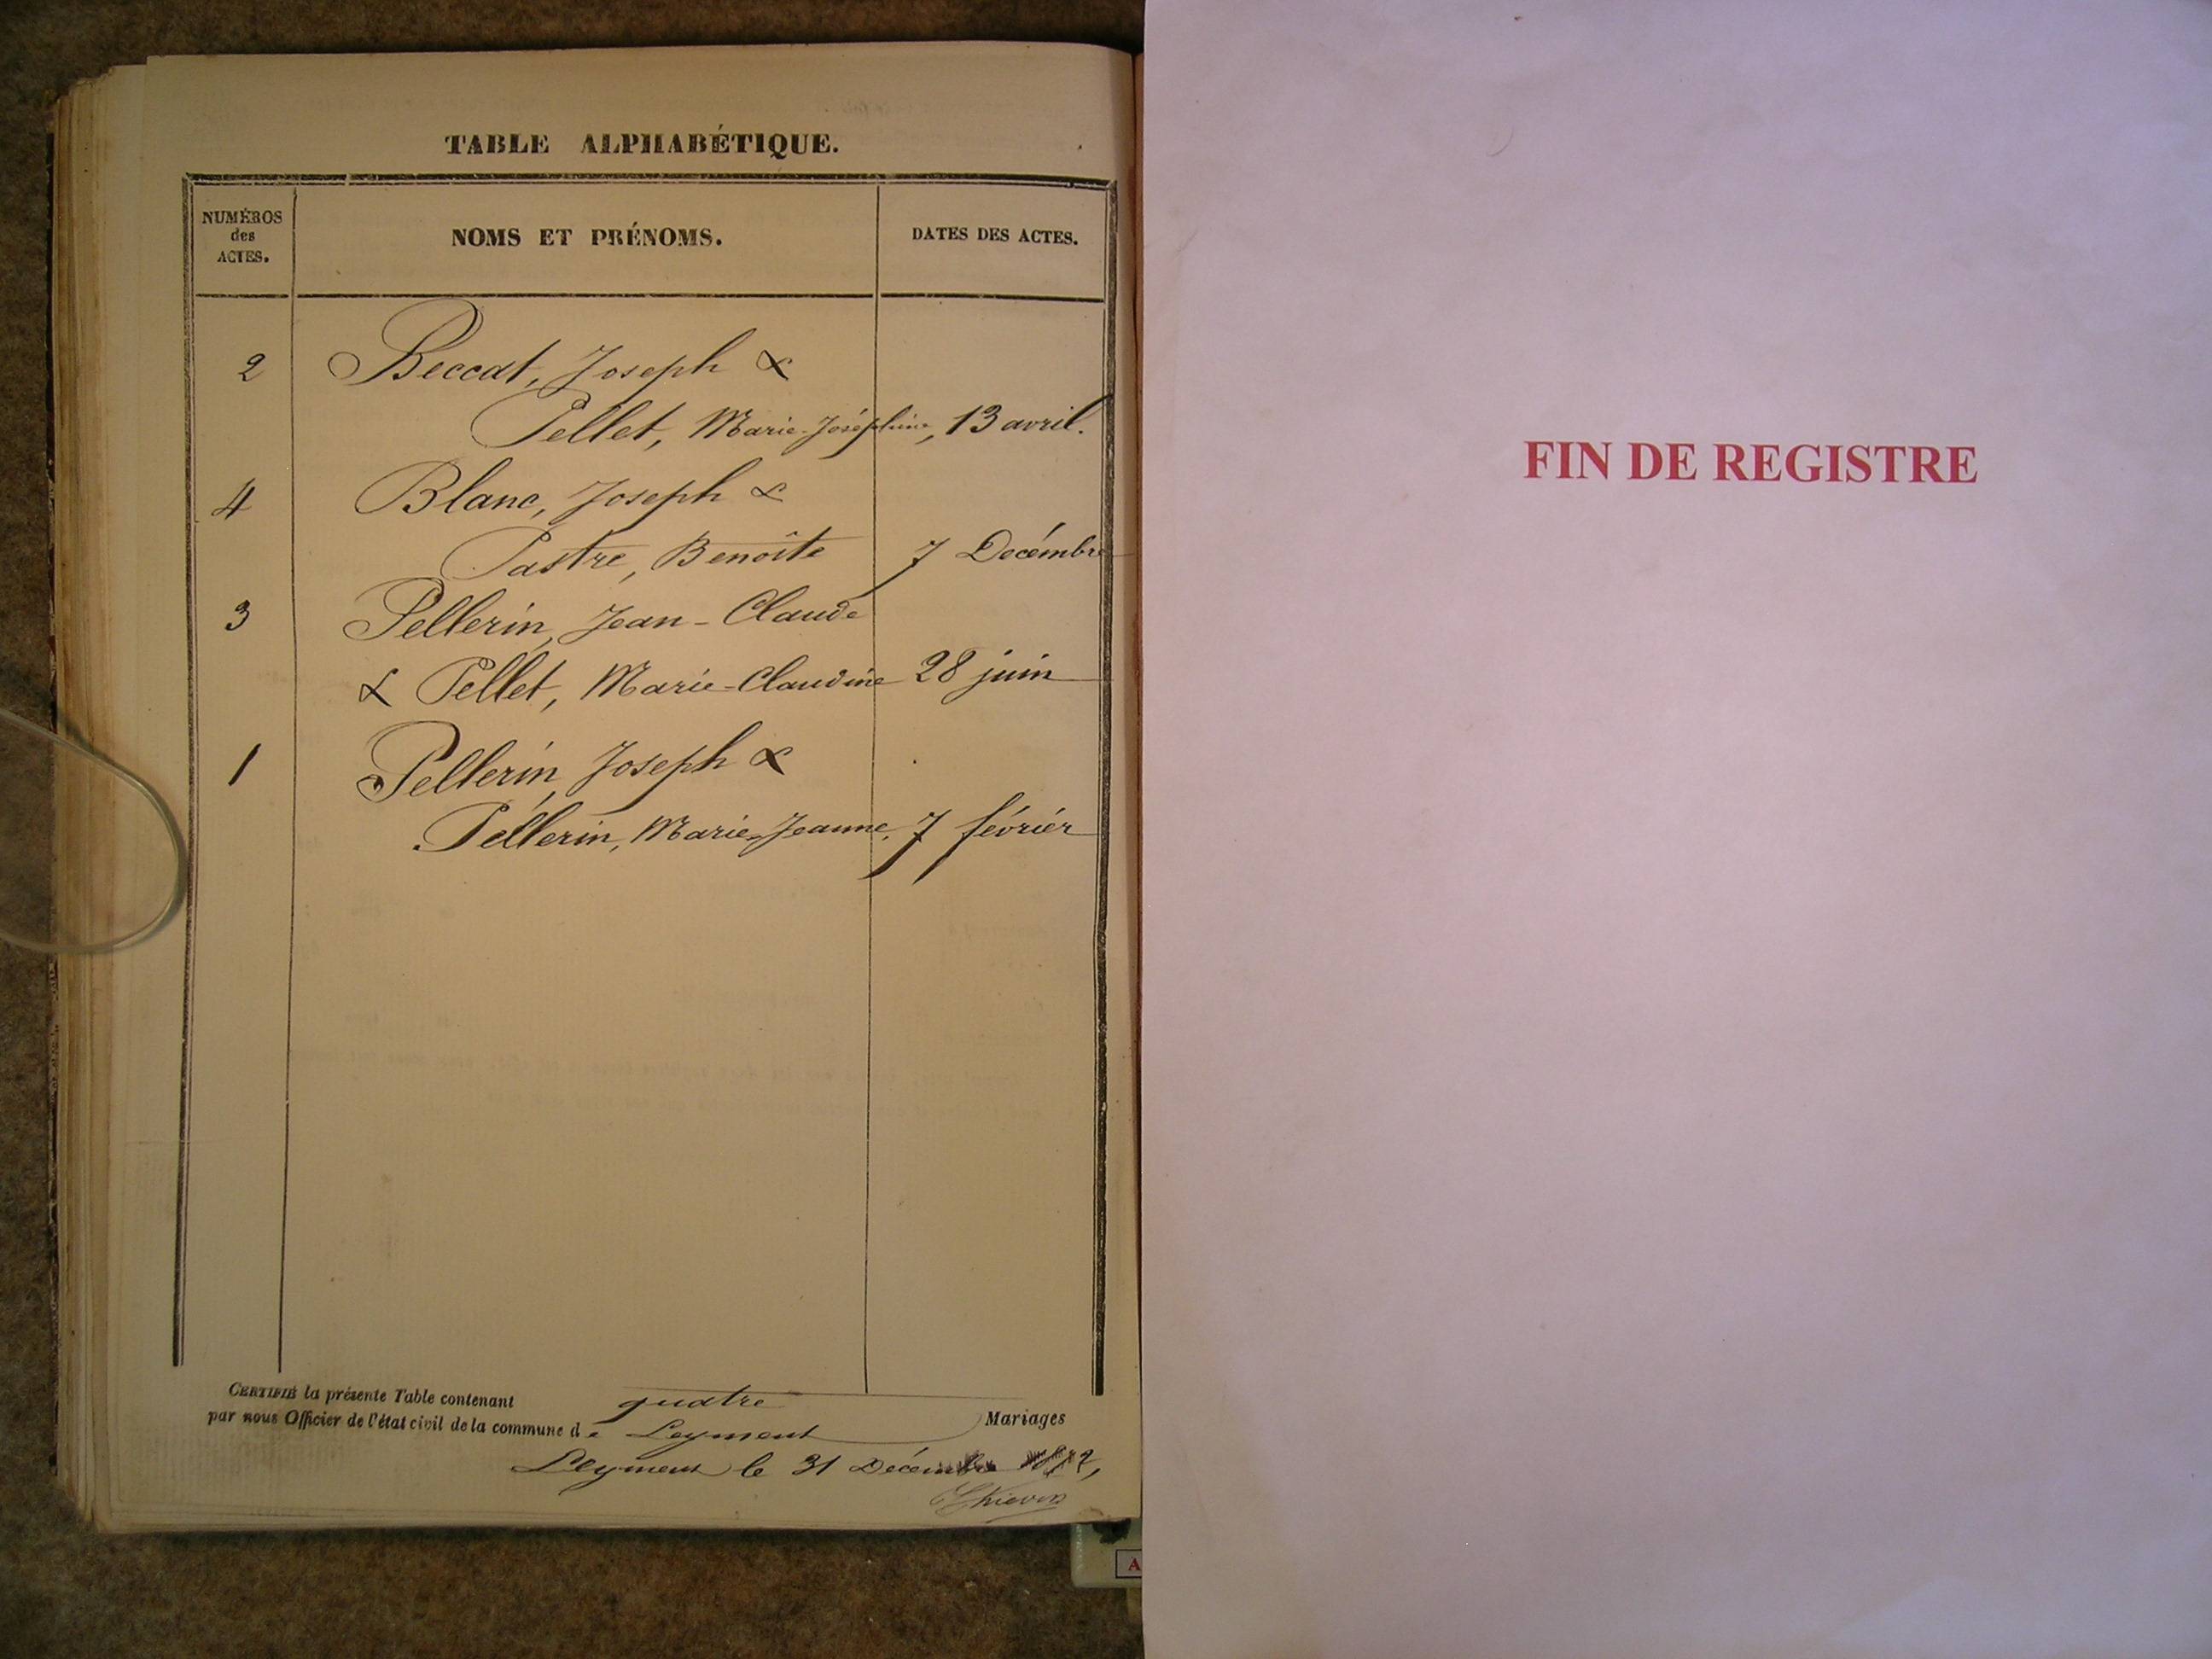 TABLE ALPHABÉTIQUE.
NUMÉROS
des
ACTES.
NOMS ET PRÉNOMS.
DATES DES ACTES.
2 Beccat, Joseph &
Pellet, Marie-Joséphine, 13 avril.
4 Blanc, Joseph &
Pastre, Benoîte 7 Decémbre
3 Pellerin, Jean-Claude
& Pellet, Marie-Claudine 28 juin
1 Pellerin, Joseph &
Pellerin, Marie-Jeanne, 7 février
CERTIFIÉ la présente Table contenant quatre Mariages
par nous Officier de l'état civil de la commune de Leyment
Leyment le 31 Décembre
FIN DE REGISTRE
A